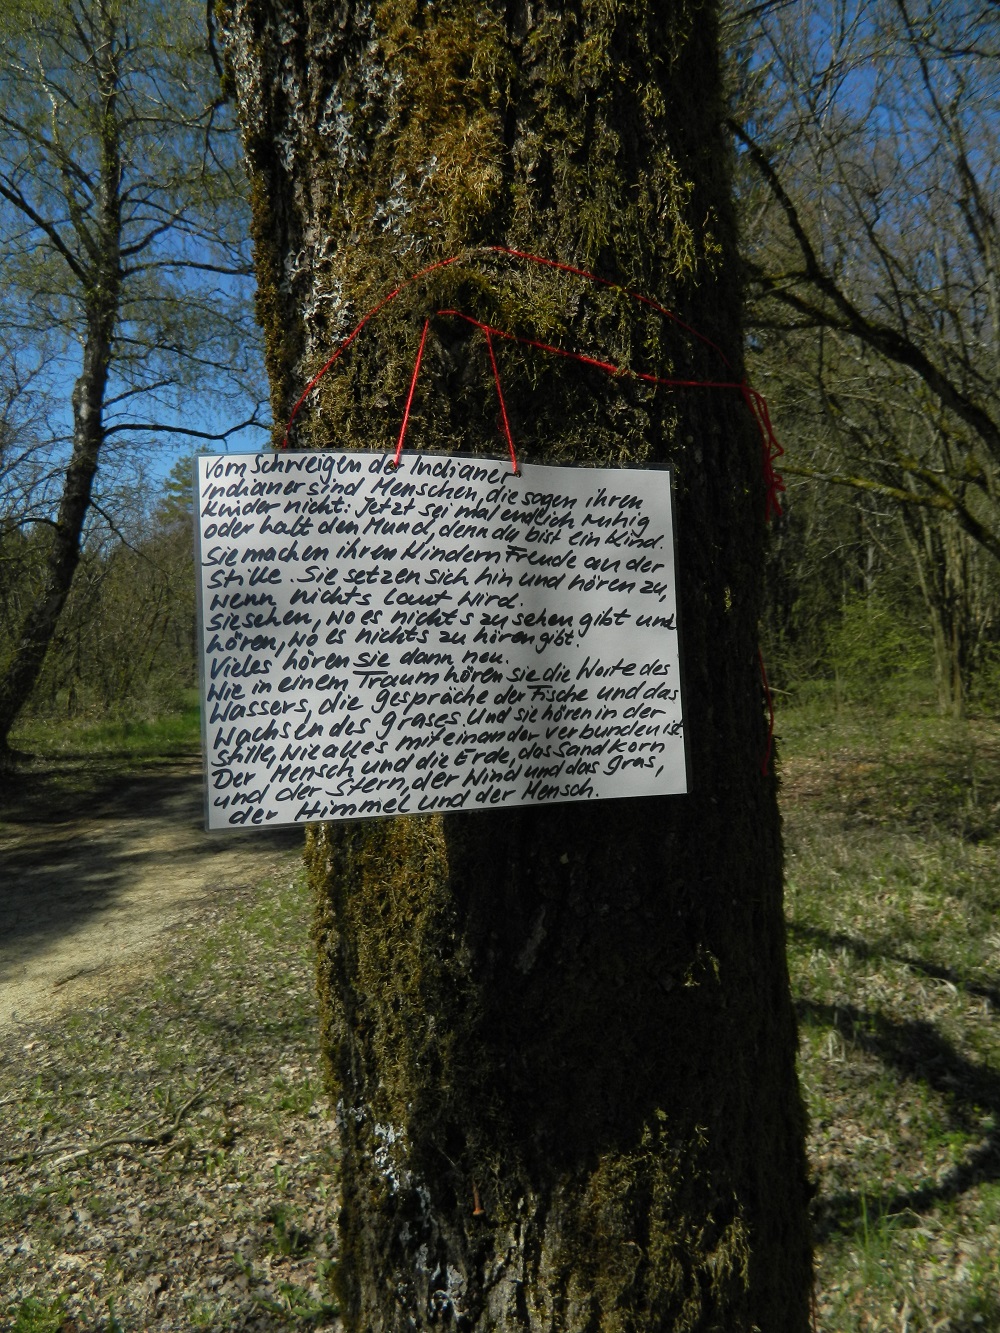 Vom Schweigen der Indianer
Indianer sind Menschen, die sagen ihren
Kinder nicht: Jetzt sei mal endlich ruhig
oder halt den Mund, denn du bist ein Kind.
Sie machen ihren Kindern Freude an der
Stille. Sie setzen sich hin und hören zu,
wenn nichts laut wird.
Sie sehen, wo es nichts zu sehen gibt und
hören, wo es nichts zu hören gibt.
Vieles hören sie dann neu.
Wie in einem Traum hören sie die Worte des
Wassers, die gespräche der Fische und das
Wachsen des grases. Und sie hören in der
Stille, wie alles miteinander verbunden ist.
Der Mensch und die Erde, das Sandkorn
und der Stern, der Wind und das gras,
der Himmel und der Mensch.